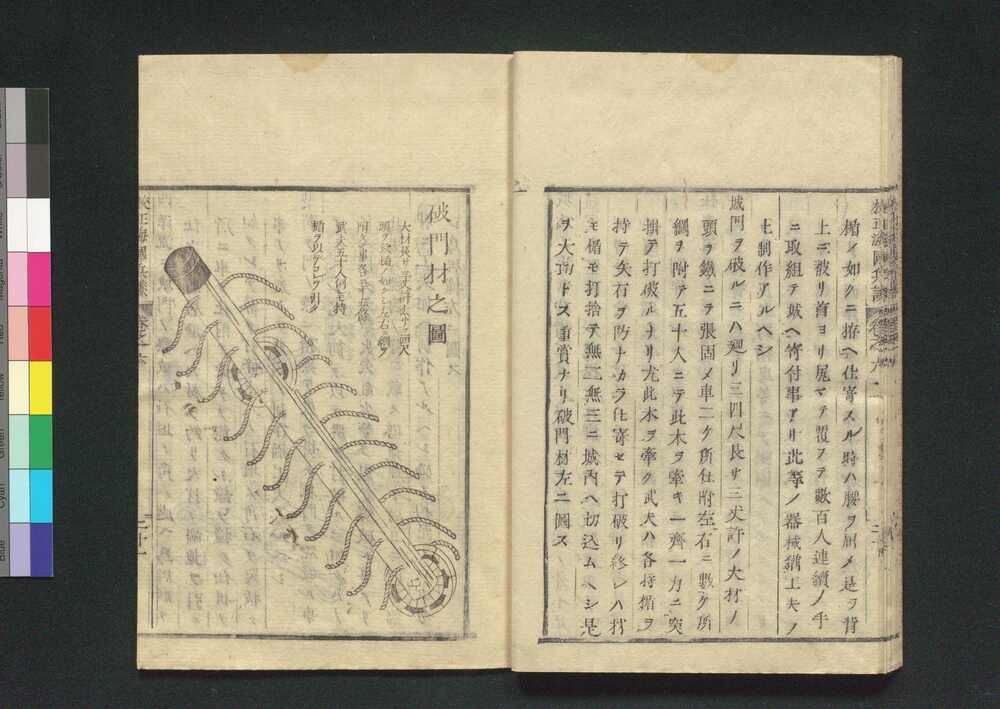 楯ノ如クニ拵ヘ仕寄スル時ハ腰ヲ屈メ是ヲ背
上ニ被リ首ヨリ尻マテ覆フテ数百人連續ノ手
ニ取組テ城ヘ寄付事アリ此等ノ器械猶工夫ノ
上制作アルヘシ
城門ヲ破ルニハ廻リ三四尺長サ三丈許ノ大材ノ
頭ヲ鐵ニテ張固メ車二ケ所仕附左右ニ數ケ所
綱ヲ附テ五十人ニテ此木ヲ牽キ一齊一力ニ突
揖テ打破ルナリ尤此木ヲ牽ク武夫ハ各持楯ヲ
持テ矢石ヲ防ナカラ仕寄セテ打破リ終レハ材
モ楯モ打捨テ無二無三ニ城内ヘ切込ムヘシ是
ヲ大功トス重賞ナリ破門材左ニ圖ス
破門材之圖
大材長サ三丈許太サ三四尺
頭ヲ鐵ニテ左右ニ綱ヲ
附ル事各二十五條
武夫五十人何モ持
楯ヲ以テコレヲ引ク
Blue
Cyan
Green
Yellow
Red
Magenta